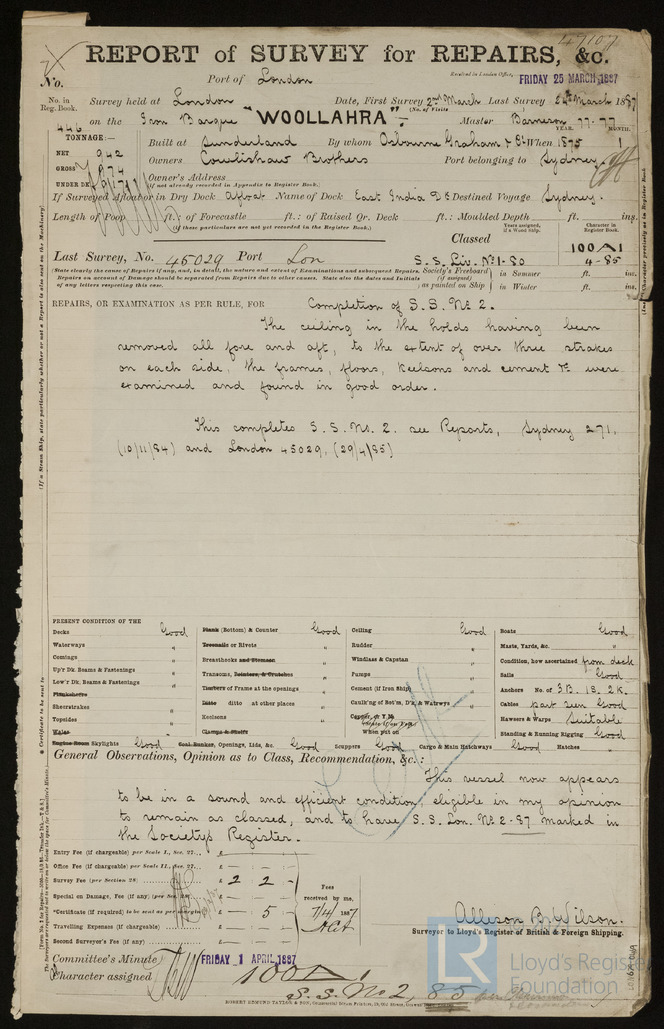 47107
REPORT of SURVEY for REPAIRS, &c.
No. Port of London Received in London Office, FRIDAY 25 MARCH 1887
No. in Reg. Book. Survey held at London Date, First Survey 2nd March Last Survey 24th March 1887
(No. of Visits
446 on the Iron Barque "WOOLLAHRA" Master Barneson 77-77
TONNAGE:— YEAR. MONTH.
Built at Sunderland By whom Osbourne Graham & Co When 1875 1
NET 942
GROSS 974 Owners Cowlishaw Brothers Port belonging to Sydney
UNDER DK 917 Owner's Address
(if not already recorded in Appendix to Register Book.)
If Surveyed Afloat or in Dry Dock Afloat Name of Dock East India Dk Destined Voyage Sydney.
Length of Poop ft.: of Forecastle ft.: of Raised Qr. Deck ft.: Moulded Depth ft. ins.
(if these particulars are not yet recorded in the Register Book.)
Years assigned, if a Wood Ship. Character in Register Book.
Classed 100A1
Last Survey, No. 45029 Port Lon S.S. Liv. No 1-80 4-85
(State clearly the cause of Repairs if any, and, in detail, the nature and extent of Examinations and subsequent Repairs. Repairs on account of Damage should be separated from Repairs due to other causes. State also the dates and initials of any letters respecting this case.
Society's Freeboard (if assigned) as painted on Ship in Summer ft. ins.
in Winter ft. ins.
REPAIRS, OR EXAMINATION AS PER RULE, FOR Completion of S.S. No. 2.
The ceiling in the holds having been
removed all fore and aft, to the extent of over three strakes
on each side, the frames, floors, keelsons and cement &c were
examined and found in good order.
This completes S.S. No. 2. see Reports, Sydney 271,
(10/11/84) and London 45029, (29/4/85)
PRESENT CONDITION OF THE
Decks Good
Waterways "
Comings "
Up'r Dk. Beams & Fastenings "
Low'r Dk. Beams & Fastenings "
Planksheers
Sheerstrakes "
Topsides "
Wales
Engine Room Skylights Good
Plank (Bottom) & Counter Good
Treenails or Rivets "
Breasthooks and Stemson "
Transoms, Pointers, & Crutches "
Timbers of Frame at the openings "
Ditto ditto at other places "
Keelsons "
Clamps & Shelfs
Coal Bunker, Openings, Lids, &c. Good
Ceiling Good
Rudder "
Windlass & Capstan "
Pumps "
Cement (if Iron Ship) "
Caulk'ng of Bot'm, D'k, & Watrwys "
Copper, or Y.M.
When put on
Scuppers Good Cargo & Main Hatchways Good Hatches "
Boats Good
Masts, Yards, &c. "
Condition, how ascertained from deck
Sails Good
Anchors No. of 3B. 1S. 2K.
Cables part seen Good
Hawsers & Warps Suitable
Standing & Running Rigging Good
General Observations, Opinion as to Class, Recommendation, &c.:
This vessel now appears
to be in a sound and efficient condition, eligible in my opinion
to remain as classed, and to have S.S. Lon. No 2-87 marked in
the Society's Register.
Entry Fee (if chargeable) per Scale I., Sec. 27... £ — —
Office Fee (if chargeable) per Scale II., Sec. 27... £ — —
Survey Fee (per Section 28) £ 2 2 —
Special on Damage, Fee (if any) (per Sec. 28) £ — —
*Certificate (if required) to be sent as per margin £ — 5
Travelling Expenses (if chargeable) £ — —
Second Surveyor's Fee (if any) £
Fees received by me,
7/4/1887
Allison B. Wilson.
Surveyor to Lloyd's Register of British & Foreign Shipping.
Committee's Minute FRIDAY 1 APRIL 1887
Character assigned 100A1
S.S. No 2, 85
Lloyd's Register
Foundation
LR